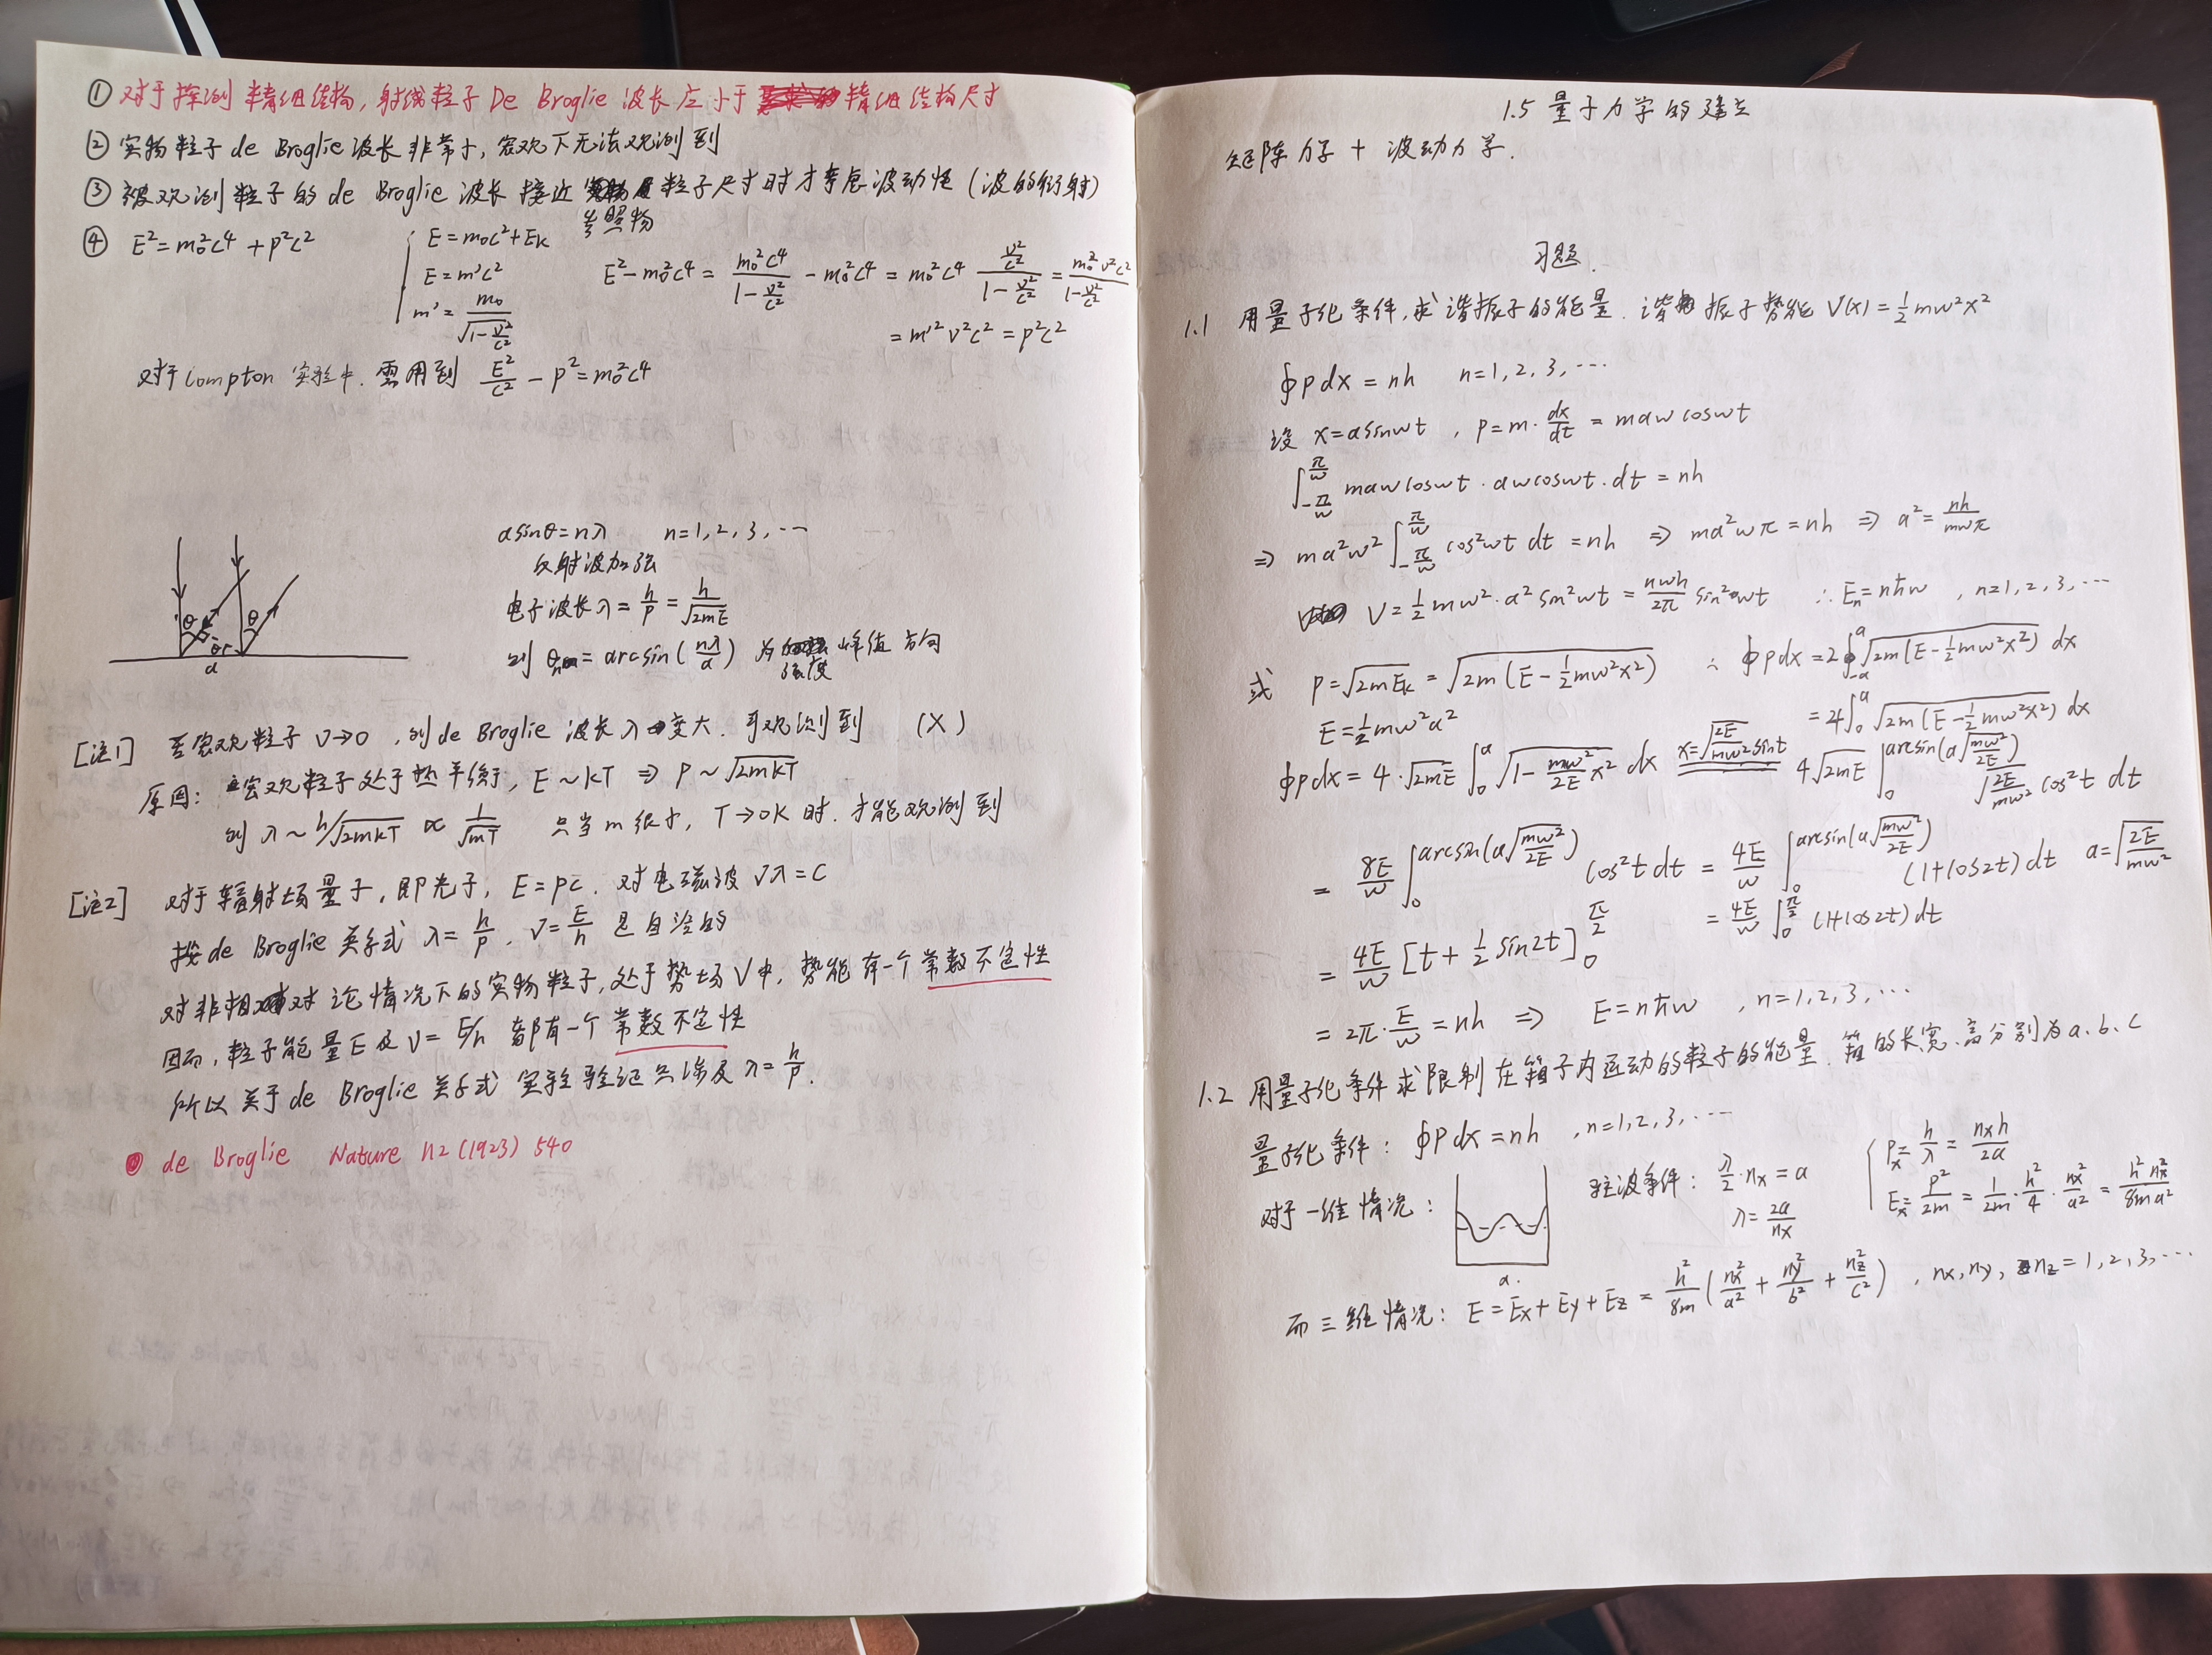 ① 对于探测精细结构, 射线粒子 De Broglie 波长应小于精细结构尺寸
② 实物粒子 de Broglie 波长非常小, 宏观下无法观测到
③ 被观测粒子的 de Broglie 波长接近粒子尺寸时才考虑波动性 (波的衍射)
参照物
④ E²=m₀²c⁴+p²c²
E=m₀c²+Eₖ
E=m'c²
m'=m₀/√(1-v²/c²)
E²-m₀²c⁴ = m₀²c⁴/(1-v²/c²) - m₀²c⁴ = m₀²c⁴ (v²/c²)/(1-v²/c²) = m₀²v²c²/(1-v²/c²)
= m'²v²c² = p²c²
对于 Compton 实验中, 需用到 E²/c² - p² = m₀²c⁴
asinθ=nλ n=1, 2, 3, …
反射波加强
电子波长 λ = h/p = h/√(2mE)
则 θₙ = arcsin(nλ/a) 为强度峰值方向
θ θ
a
[注1] 若宏观粒子 v→0, 则 de Broglie 波长 λ 变大, 可观测到 (X)
原因: 宏观粒子处于热平衡, E~kT ⇒ p~√(2mkT)
则 λ~h/√(2mkT) ∝ 1/√(mT) 只当 m 很小, T→0K 时, 才能观测到
[注2] 对于辐射场量子, 即光子, E=pc, 对电磁波 νλ=c
按 de Broglie 关系式 λ=h/p, ν=E/h 是自洽的
对非相对论情况下的实物粒子, 处于势场 V 中, 势能有一个常数不定性
因而, 粒子能量 E 及 ν=E/h 都有一个常数不定性
所以关于 de Broglie 关系式实验验证只涉及 λ=h/p.
de Broglie Nature 112 (1923) 540
1.5 量子力学的建立
矩阵力学 + 波动力学.
习题.
1.1 用量子化条件, 求谐振子的能量. 谐振子势能 V(x)=½mω²x²
∮pdx = nh n=1, 2, 3, …
设 x=asinωt, p=m·dx/dt = maωcosωt
∫_{-π/ω}^{π/ω} maωcosωt·aωcosωt·dt = nh
⇒ ma²ω² ∫_{-π/ω}^{π/ω} cos²ωt dt = nh ⇒ ma²ωπ = nh ⇒ a² = nh/mωπ
V=½mω²·a²sin²ωt = nωh/2π sin²ωt ∴ Eₙ=nħω, n=1, 2, 3, …
或 p=√(2mEₖ) = √(2m(E-½mω²x²)) ∴ ∮pdx = 2∮_{-a}^{a} √(2m(E-½mω²x²)) dx
E=½mω²a² = 4∫₀^a √(2m(E-½mω²x²)) dx
∮pdx = 4·√(2mE) ∫₀^a √(1-mω²/2E x²) dx x=√(2E/mω²) sint 4√(2mE) ∫₀^{arcsin(a√(mω²/2E))} √(2E/mω²) cos²t dt
= 8E/ω ∫₀^{arcsin(a√(mω²/2E))} cos²t dt = 4E/ω ∫₀^{arcsin(a√(mω²/2E))} (1+cos2t) dt a=√(2E/mω²)
= 4E/ω [t+½sin2t]₀^{π/2} = 4E/ω ∫₀^{π/2} (1+cos2t) dt
= 2π·E/ω = nh ⇒ E=nħω, n=1, 2, 3, …
1.2 用量子化条件求限制在箱子内运动的粒子的能量. 箱的长宽、高分别为 a、b、c
量子化条件: ∮pdx = nh, n=1, 2, 3, …
对于一维情况: 驻波条件: λ/2·nₓ = a
λ = 2a/nₓ
pₓ = h/λ = nₓh/2a
Eₓ = p²/2m = 1/2m·h²/4·nₓ²/a² = h²nₓ²/8ma²
a.
而三维情况: E=Eₓ+E_y+E_z = h²/8m (nₓ²/a² + n_y²/b² + n_z²/c²), nₓ, n_y, n_z = 1, 2, 3, …